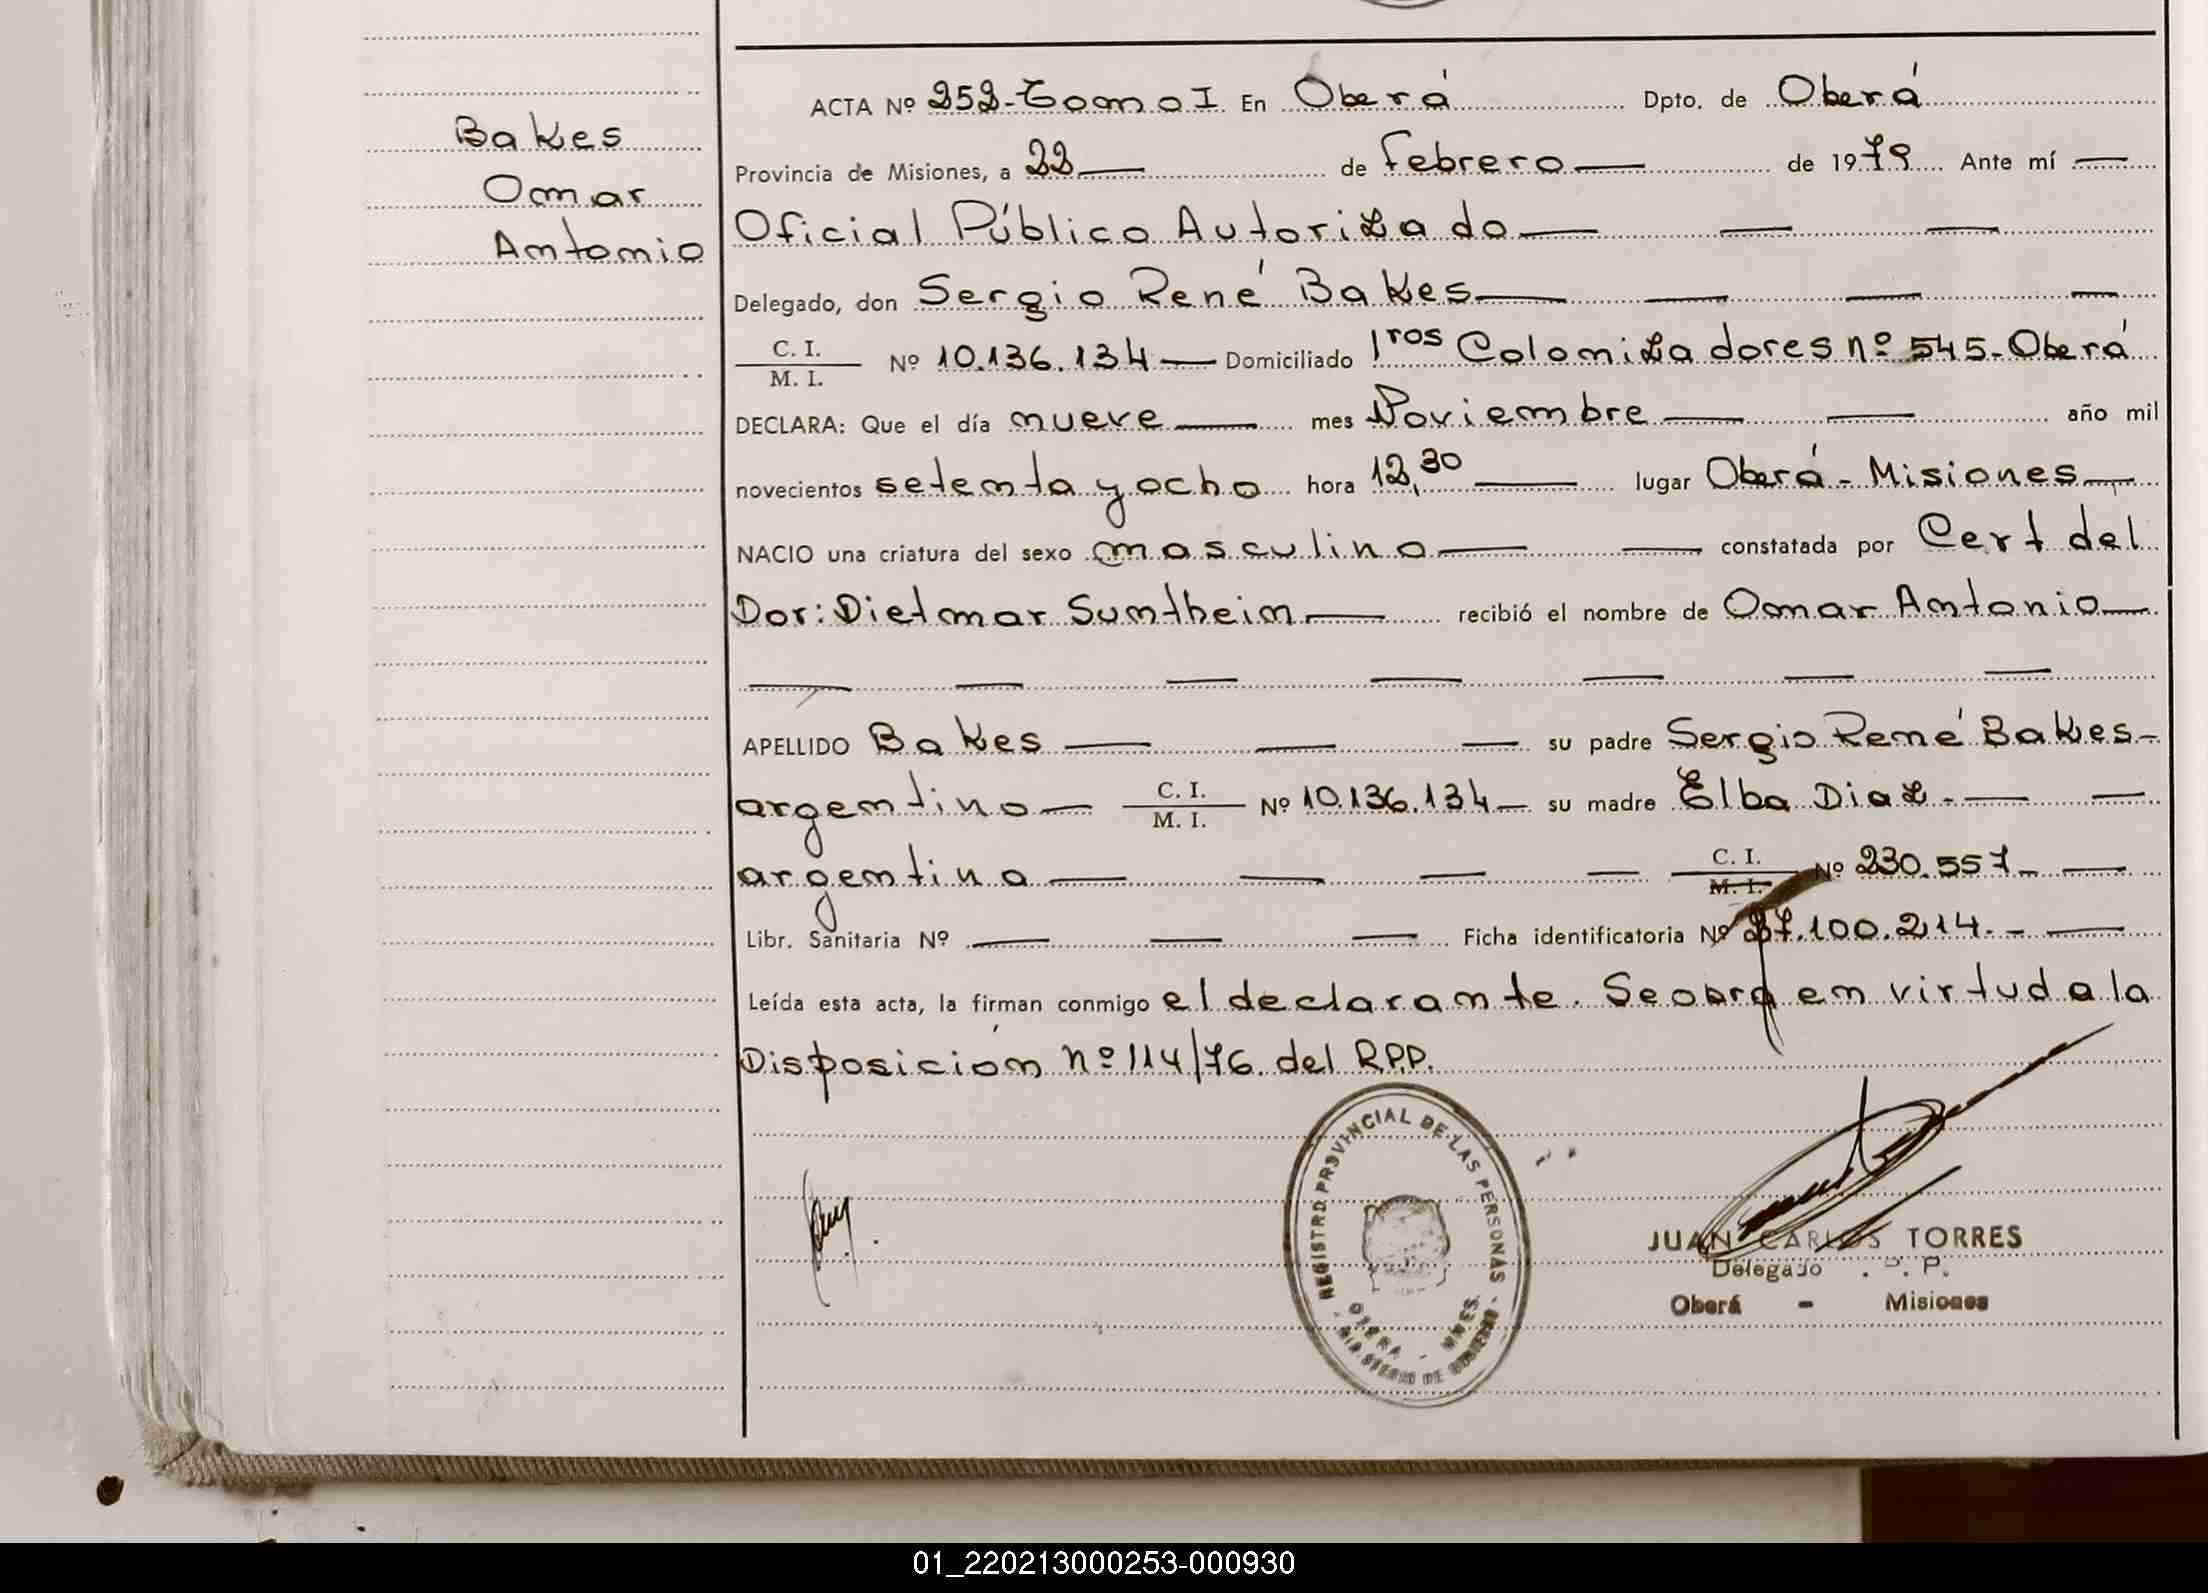 Bakes
Omar
Antonio
ACTA Nº 252-Tomo I En Oberá Dpto. de Oberá
Provincia de Misiones, a 22 de Febrero de 1979 Ante mí
Oficial Público Autorizado
Delegado, don Sergio René Bakes
C. I.
M. I. Nº 10.136.134 Domiciliado 1ros Colonizadores nº 545-Oberá
DECLARA: Que el día nueve mes Noviembre año mil
novecientos setenta y ocho hora 12,30 lugar Oberá - Misiones
NACIO una criatura del sexo masculino constatada por Cert del
Dor: Dietmar Suntheim recibió el nombre de Omar Antonio
APELLIDO Bakes su padre Sergio René Bakes-
argentino C. I.
M. I. Nº 10.136.134 su madre Elba Diaz.
argentina C. I.
M. I. Nº 230.557
Libr. Sanitaria Nº Ficha identificatoria Nº 27.100.214.-
Leída esta acta, la firman conmigo el declarante. Se obra en virtud a la
Disposición nº 114/76 del R.P.P.
REGISTRO PROVINCIAL DE LAS PERSONAS
OBERA - MNES.
MINISTERIO DE GOBIERNO
JUAN CARLOS TORRES
Delegado . P. P.
Oberá - Misiones
01_220213000253-000930